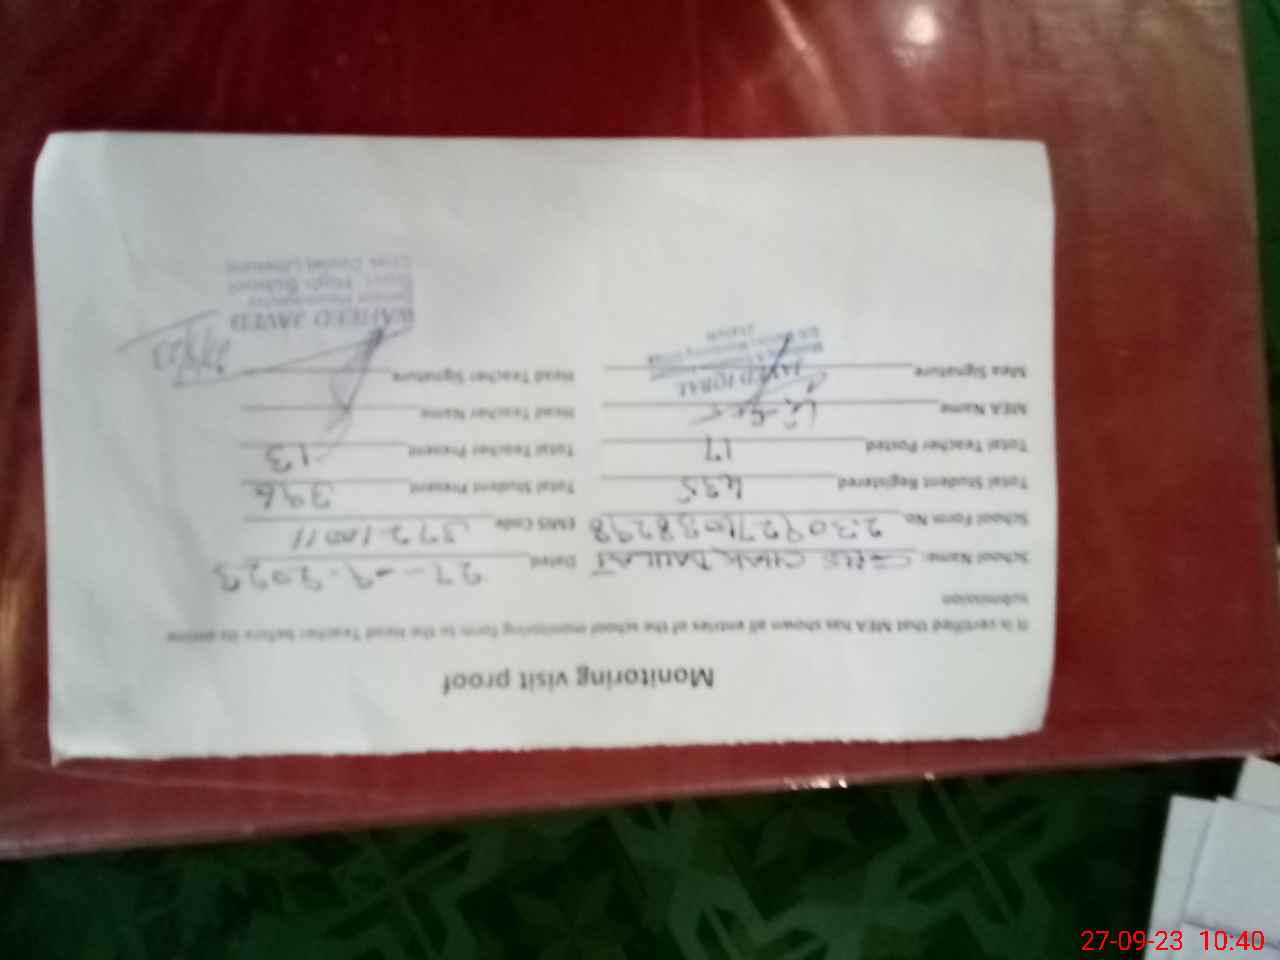 Monitoring visit proof
It is certified that MEA has shown all entries of the school monitoring form to the Head Teacher before its online
submission
School Name GHS CHAK DAULAT Dated 27-09-2023
School Form No. 230927103838298 EMIS Code 37210011
Total Student Registered 435 Total Student Present 396
Total Teacher Posted 17 Total Teacher Present 13
MEA Name Head Teacher Name
Mea Signature Head Teacher Signature
JAVED IQBAL
WAHEED JAVED
Senior Headmaster
Govt. High School
Chak Daulat (Jhelum)
27-09-23 10:40